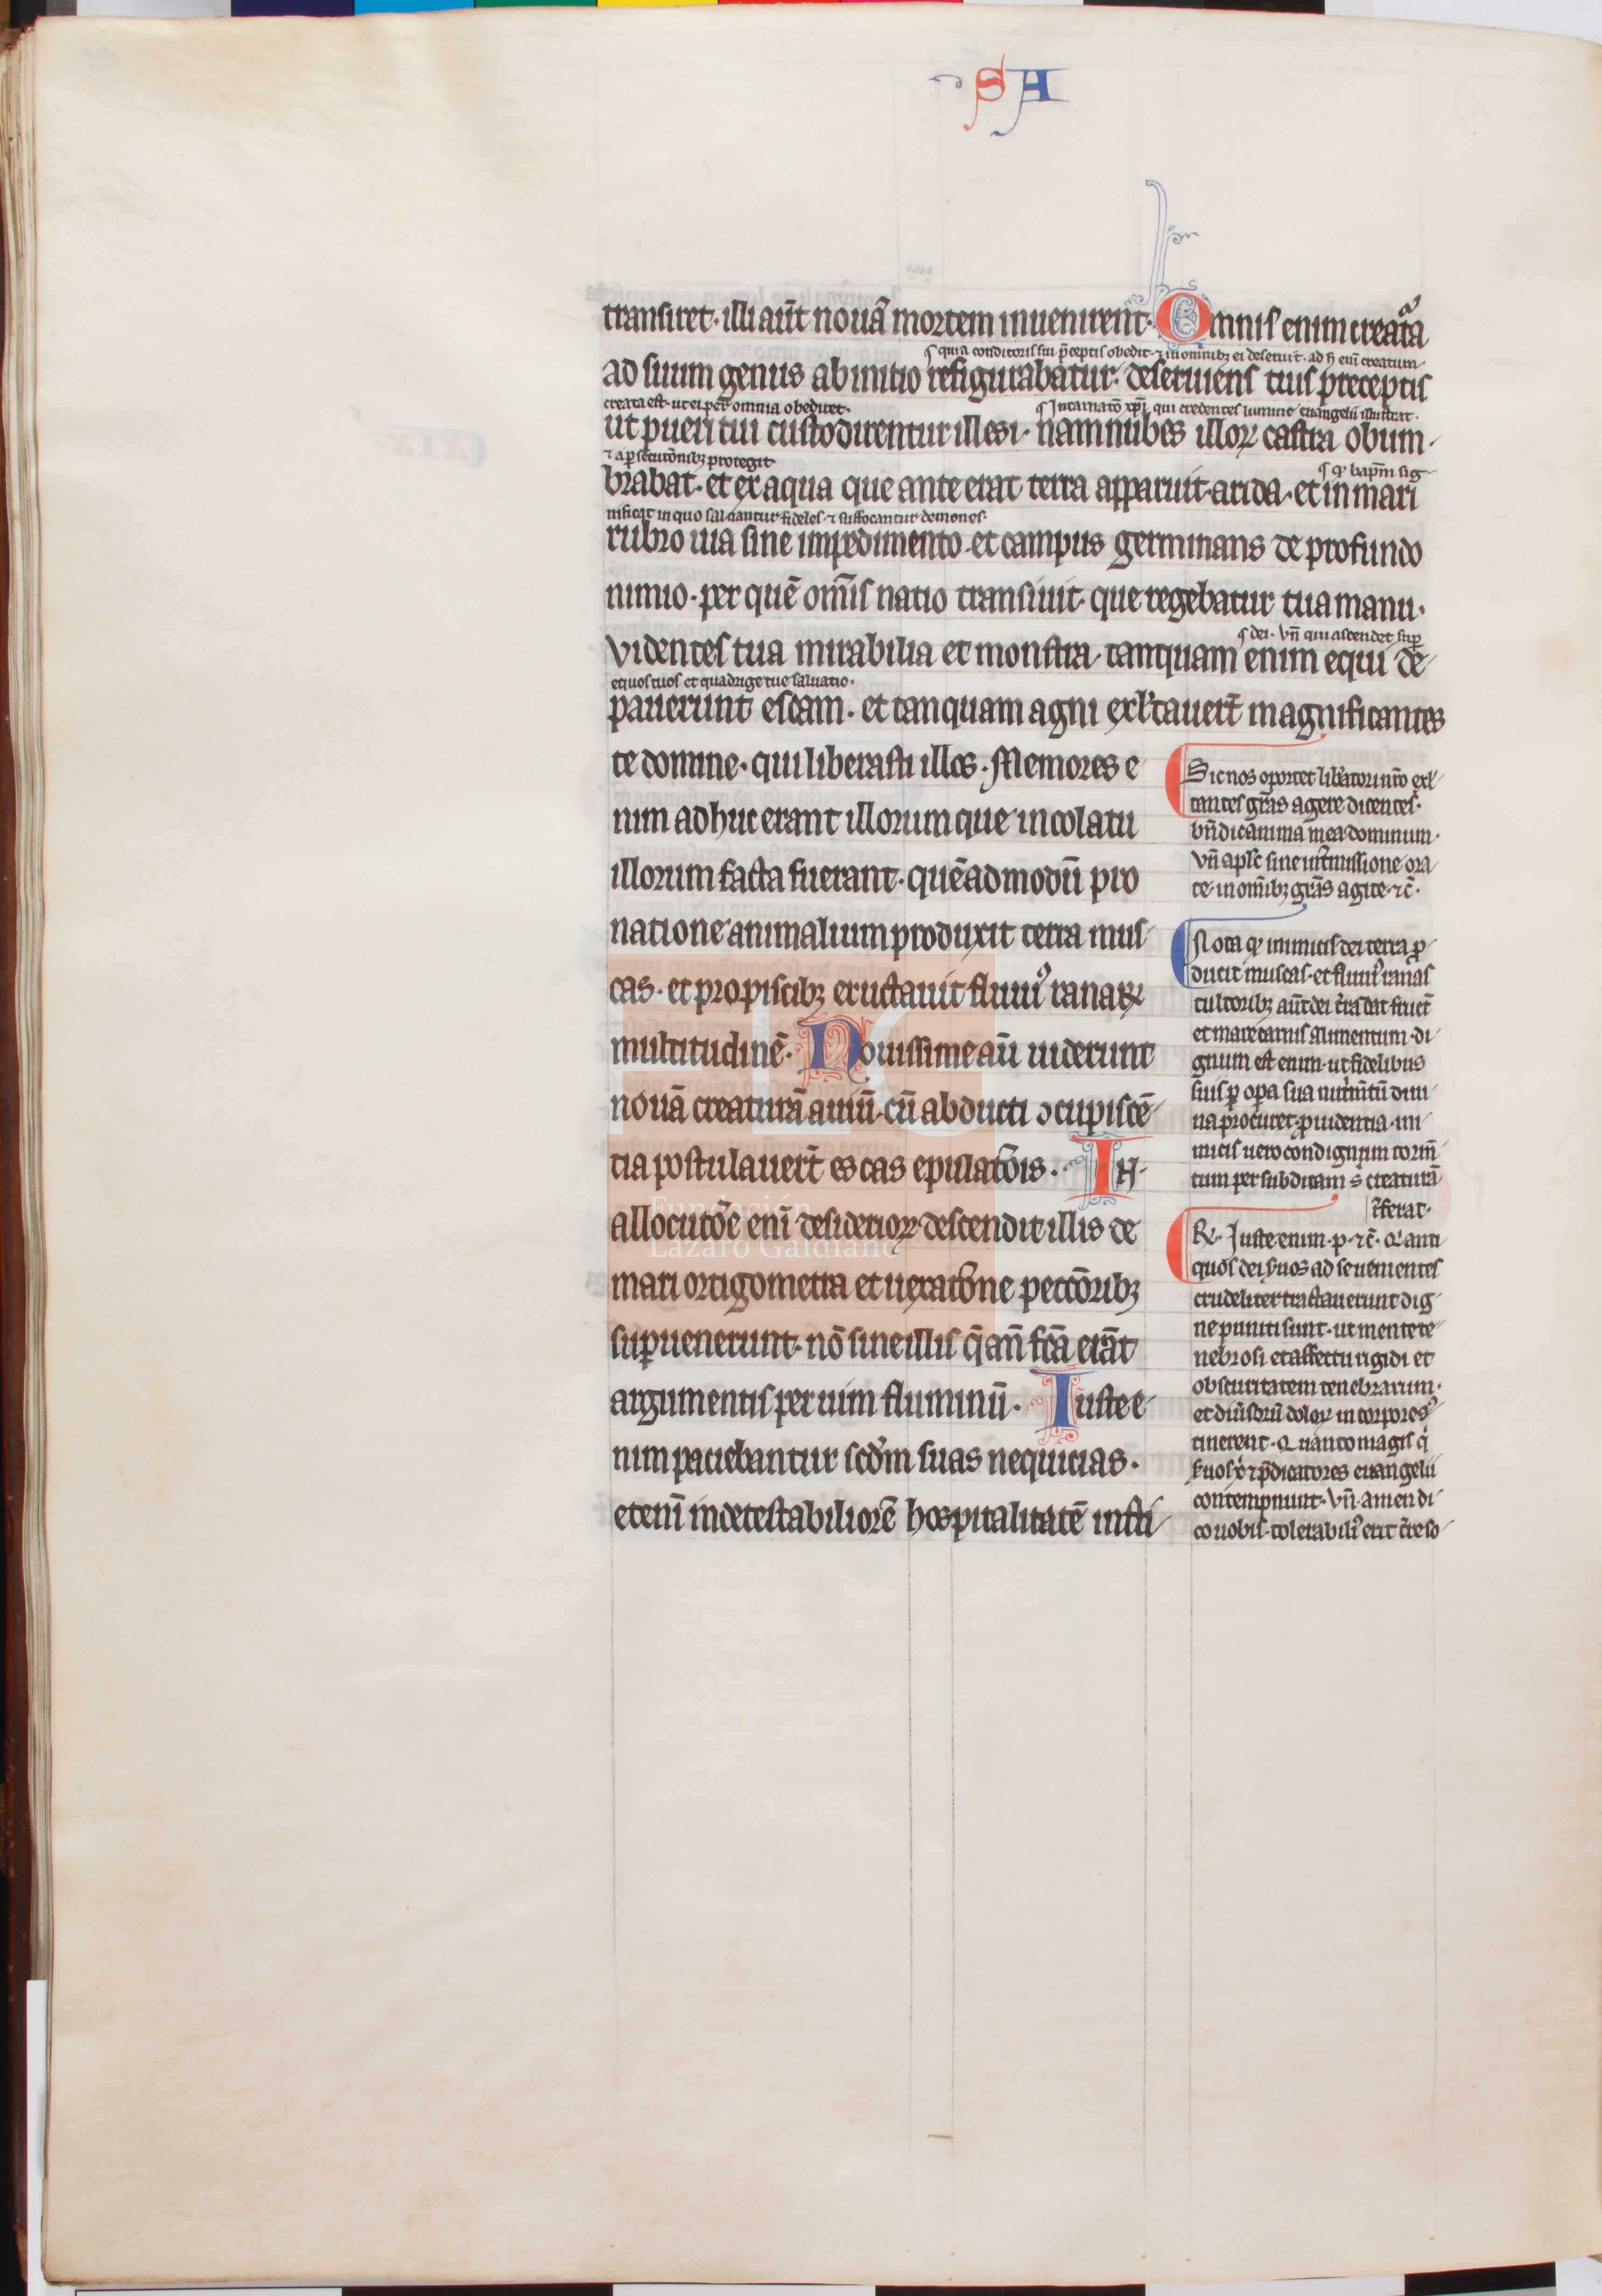 SA
transiret· illi aūt nouā mortem inuenirent· Omnis enim creatᷓa
¶ quia conditoris sui p̄ceptis obedit· ⁊ in omnibꝫ ei deseruit· ad h̄ eni creatum
ad suum genus ab initio refigurabatur· deseruiens tuis preceptis
creata est· ut ei per omnia obediret·
¶ Incarnatō xp̄i qui credentes lumine euangelii illustrat·
ut pueri tui custodirentur illesi· nam nubes illoꝝ castra obum-
⁊ a ꝑsecutōnibꝫ protegit
¶ qꝫ bapt̄m sig-
brabat· et ex aqua que ante erat terra apparuit arida· et in mari
nificat in quo saluantur fideles ⁊ suffocantur demones·
rubro uia sine impedimento· et campus germinans de profundo
nimio· per quē om̄is natio transiuit que regebatur tua manu·
¶ dei· vn̄ qui ascendet suꝑ
videntes tua mirabilia et monstra· tanquam enim equi de-
equos tuos et quadrige tue saluatio·
pauerunt escam· et tanquam agni exl'tauer̄t magnificantes
te domine· qui liberasti illos· Memores e
nim adhuc erant illorum que in colatu
illorum facta fuerant· quēadmodū pro
natione animalium produxit terra mus-
cas· et pro piscibꝫ eructauit fluuiꝰ ranaꝝ
multitudinē· Nouissime aū uiderunt
nouā creaturā auiū· cū abducti ↄcupiscē-
tia postulauer̄t escas epulatōis· In
allocutōe eni desiderioꝝ descendit illis de
mari ortigometra et uexatōne peccōribꝫ
suꝑuenerunt· nō sine illis q̄ an̄ fc̄a erāt
argumentis per uim fluminū· Iuste e-
nim patiebantur scdm̄ suas nequicias·
eteni indetestabiliorē hospitalitatē insti-
Sic nos oportet lib'atori nr̄o exl'-
tantes gr̄as agere dicentes·
bn̄dic anima mea dominum·
vn̄ apl's sine int'missione ora-
te· in om̄ibꝫ gr̄as agite· ⁊c̄·
Nota qꝫ inimicis dei terra ꝓ-
ducit muscas· et fluuiꝰ ranas
cultoribꝫ aūt dei t'ra dat fruct̄
et mare carnis alimentum· di-
gnum est enim· ut fidelibus
suis ꝑ oꝑa sua nut'mtū diui-
na procuret ꝓuidentia· ini-
micis uero condignum torm̄-
tum per subditam s' creaturā
īferat·
R· Iuste enim· p· ⁊c̄· Q' anti-
quos dei s'uos ad se uenientes
crudeliter tractauerunt dig-
ne puniti sunt· ut mente te-
nebrosi et affectu rigidi et
obscuritatem tenebrarum·
et diuisorū doloꝝ in corpore sꝰ-
tinerent· Quanto magis q'
s'uos x' ⁊ p̄dicatores euangelii
contempnunt· vn̄· amen di-
co uobis· tolerabiliꝰ erit t're so-
Fundación
Lázaro Galdiano